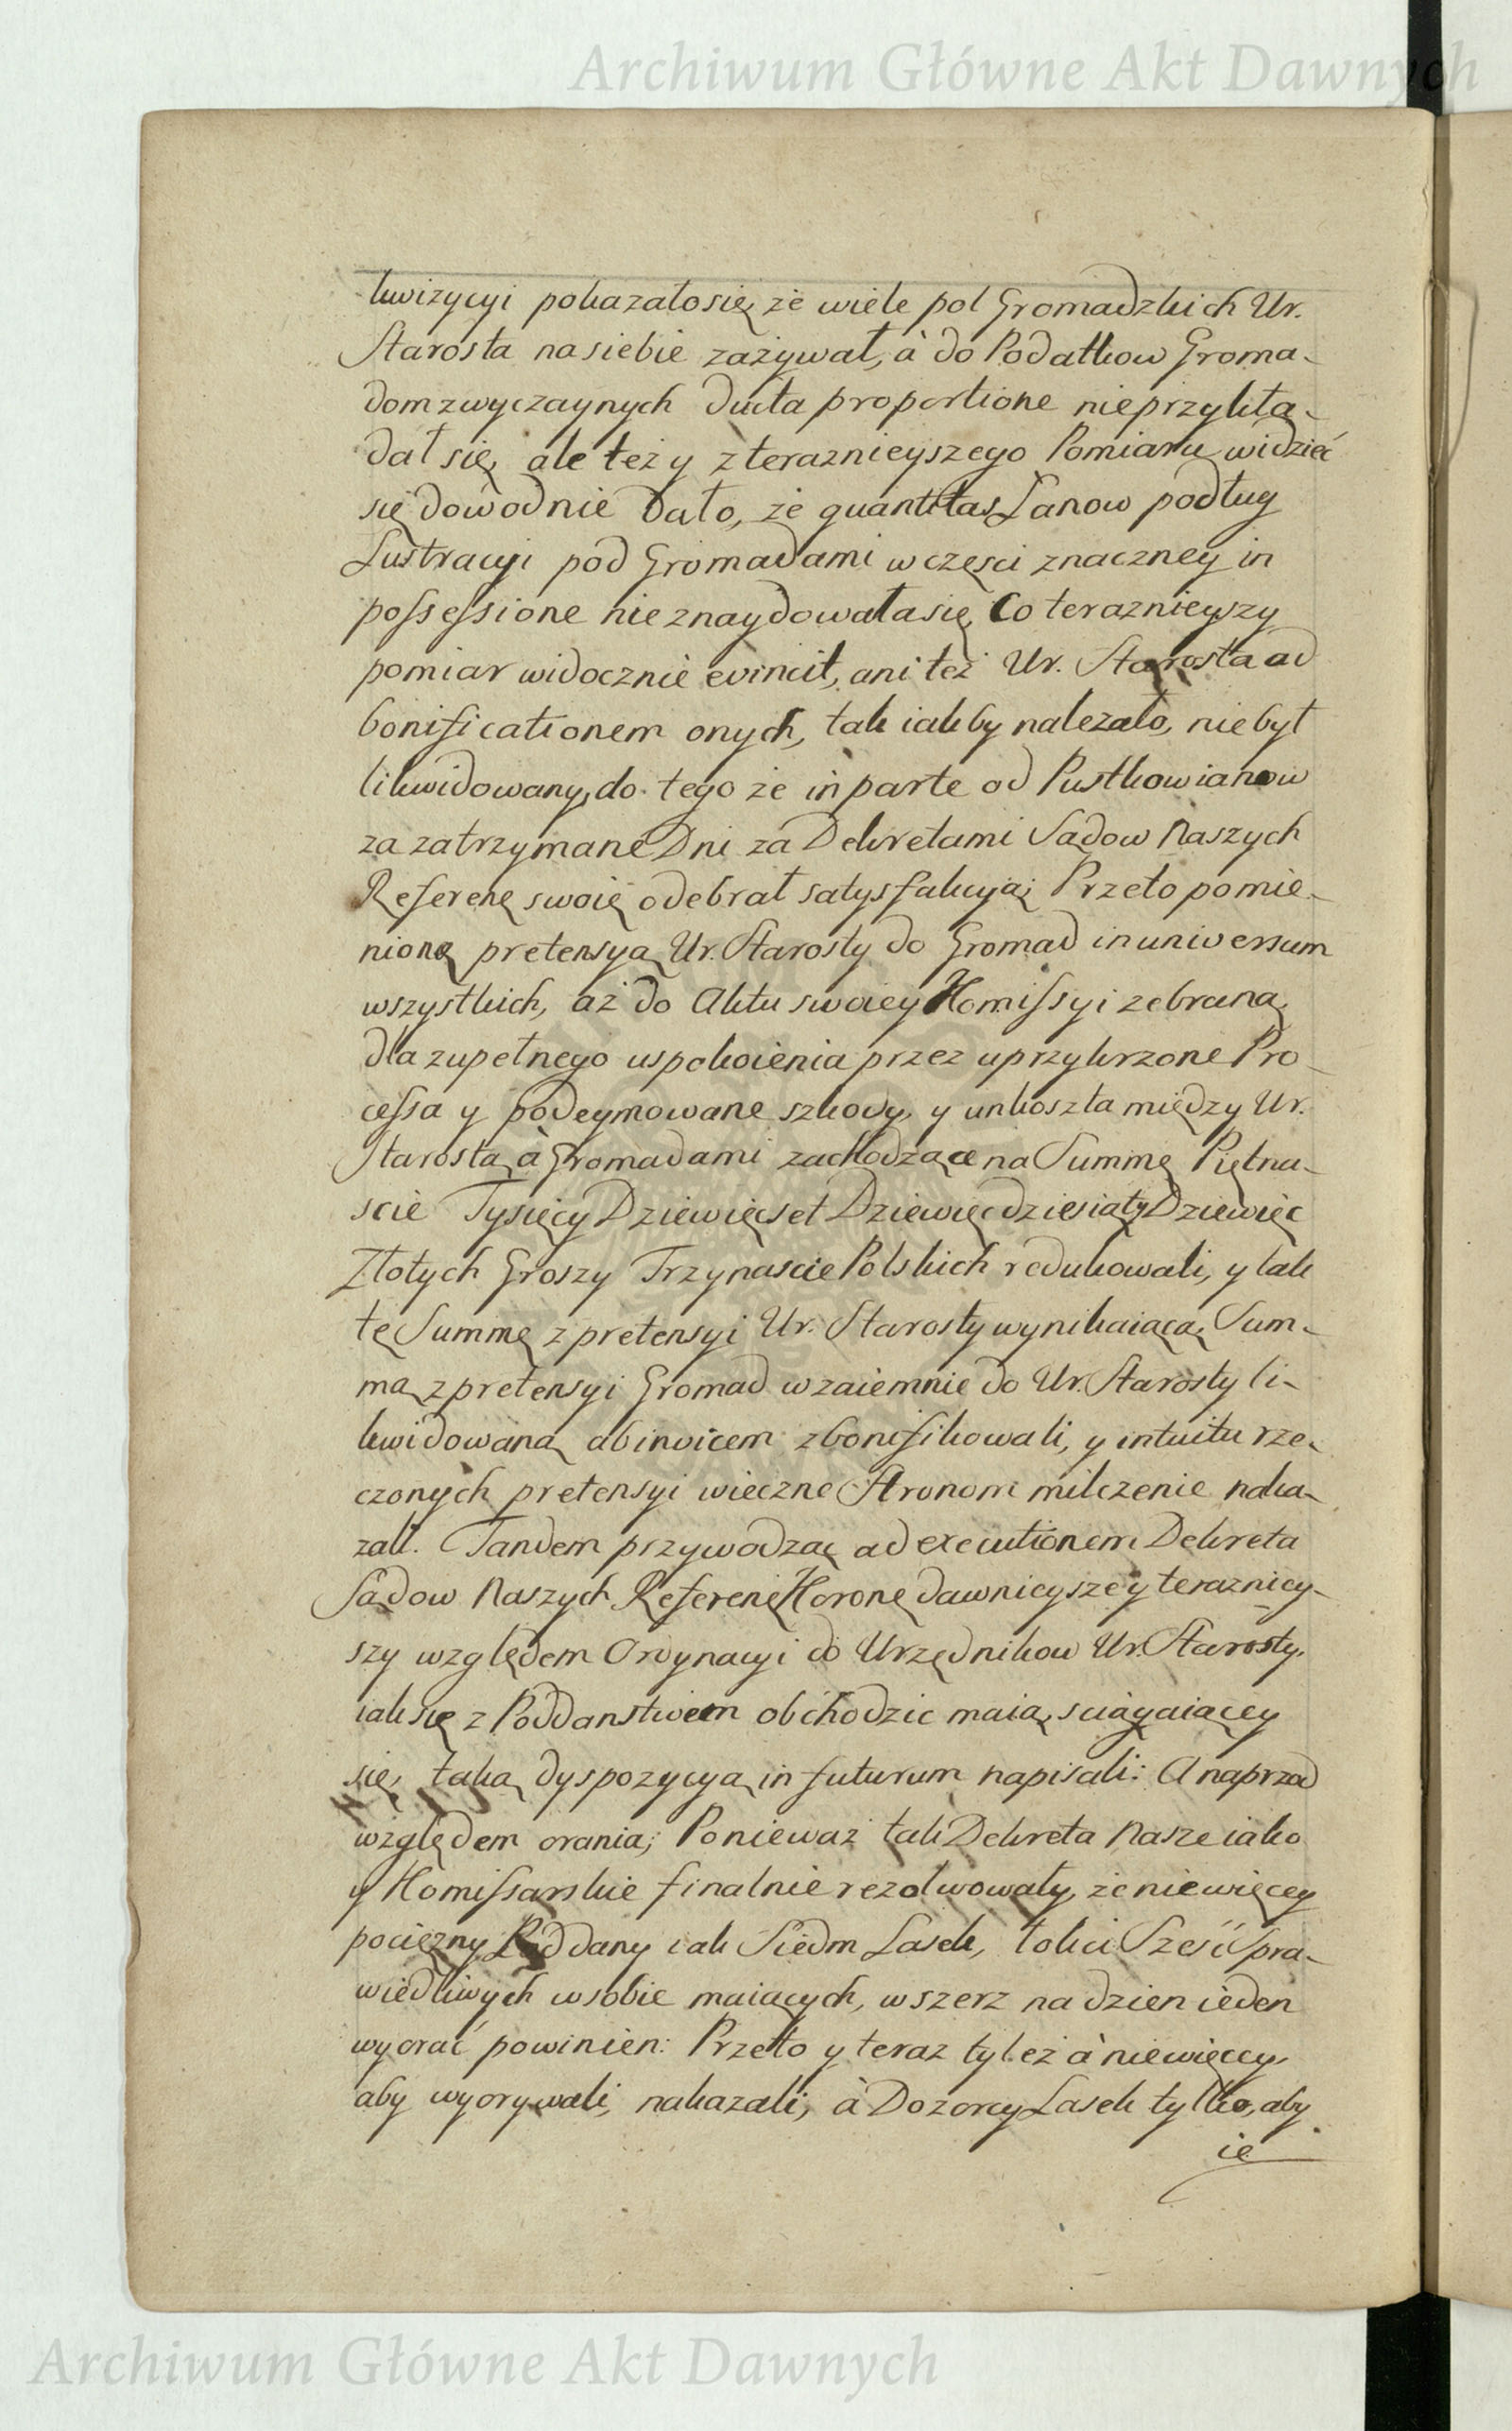 Archiwum Główne Akt Dawnych
kwizycyi pokazało się, że wiele pol Gromadzkich Ur.
Starosta na siebie zażywał, à do Podatkow Groma-
dom zwyczaynych ducta proportione nieprzykła-
dał się, ale też y z teraznieyszego Pomiaru widzieć
się dowodnie dało, że quantitas Łanow podług
Lustracyi pod Gromadami w częsci znaczney in
possessione nie znaydowała się, Co teraznieyszy
pomiar widocznie evincit, ani też Ur. Starosta ad
bonificationem onych, tak iakby należało, nie był
likwidowany, do tego że in parte od Pustkowianow
za zatrzymane Dni za Dekretami Sądow Naszych
Referen: swoię odebrał satysfakcyą; Przeto pomie-
nioną pretensyą Ur. Starosty do Gromad in universum
wszystkich, aż do Aktu swoiey Kommissyi zebraną,
dla zupełnego uspokoienia przez uprzykrzone Pro-
cessa y podeymowane szkody, y unkoszta między Ur.
Starostą à Gromadami zachodzące na Summę Piętna-
scie Tysięcy Dziewięćset Dziewięcdziesiąty Dziewięc
Złotych Groszy Trzynascie Polskich redukowali, y tak
tę Summę z pretensyi Ur. Starosty wynikaiącą, Sum-
mą z pretensyi Gromad wzaiemnie do Ur. Starosty li-
kwidowaną ab invicem zbonifikowali, y intuitu rze-
czonych pretensyi wieczne Stronom milczenie naka-
zali. Tandem przywodząc ad executionem Dekreta
Sądow Naszych Referen: Koronę dawnieysze y terazniey-
szy względem Ordynacyi do Urzędnikow Ur. Starosty,
iak się z Poddanstwem obchodzic maią, sciągaiącey
się, taką dyspozycyą in futurum napisali: A naprzod
względem orania; Ponieważ tak Dekreta Nasze iako
y Komissarskie finalnie rezolwowały, że niewięcey
pociężny Poddany iak Siedm Lasek, łokci Sześć Spra-
wiedliwych w sobie maiących, wszerz na dzien ieden
wyorać powinien: Przeto y teraz tyleż à niewięcey,
aby wyorywali, nakazali, à Dozorcy Lasek tylko, aby
ie
Archiwum Główne Akt Dawnych